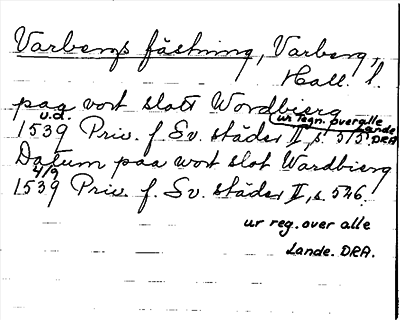 Varbergs fästning, Varberg,
Hall. l.
paa vort slott Wordbierg
u.d. ur regn. over alle
1539 Priv. f. Sv. städer II, s. 515. Lande DRA
Datum paa wort slot Wardbierg
4/9
1539 Priv. f. Sv. städer II, s. 546.
ur reg. over alle
Lande. DRA.